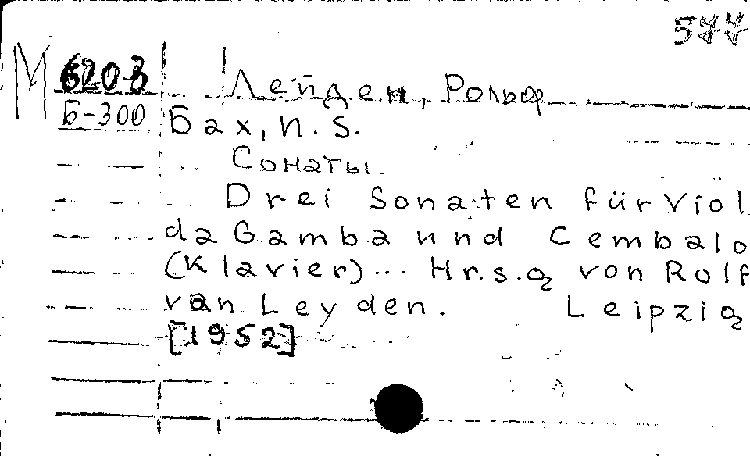 577
М 6203 Лейден, Рольф
Б-300 Бах, И. S.
Сонаты.
Drei Sonaten für Viol
da Gamba und Cembalo
(Klavier)... Hrsg von Rolf
van Leyden. Leipzig
[1952]